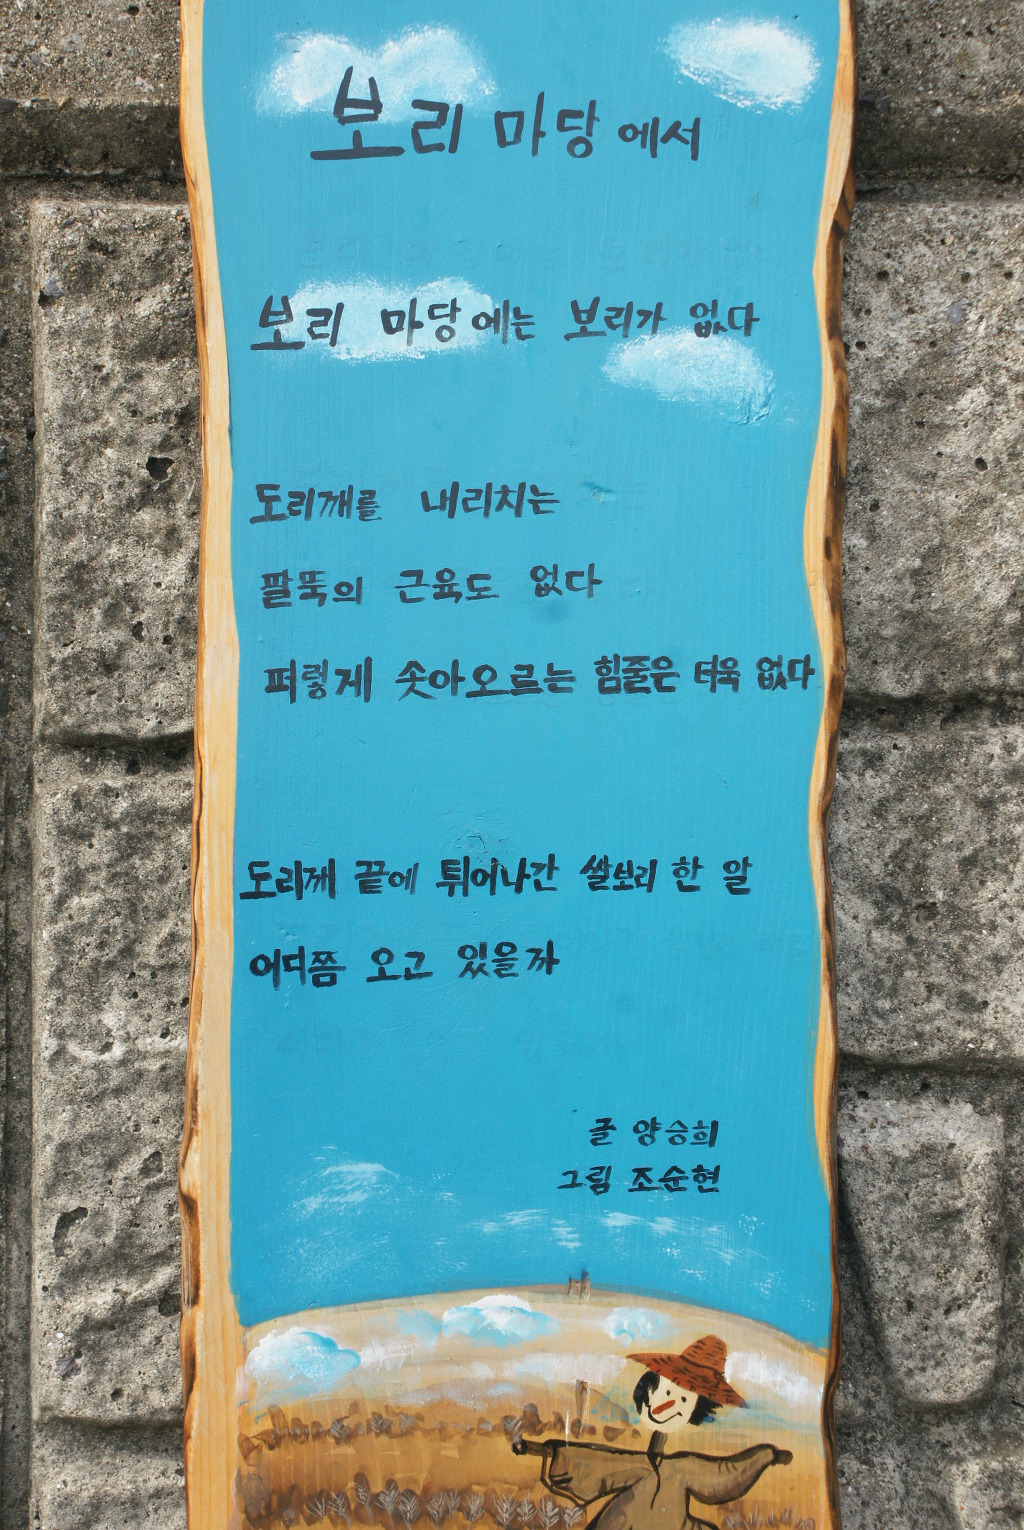 보리 마당에서
보리 마당에는 보리가 없다
도리깨를 내리치는
팔뚝의 근육도 없다
퍼렇게 솟아오르는 힘줄은 더욱 없다
도리깨 끝에 튀어나간 쌀보리 한 알
어디쯤 오고 있을까
글 양승희
그림 조순현